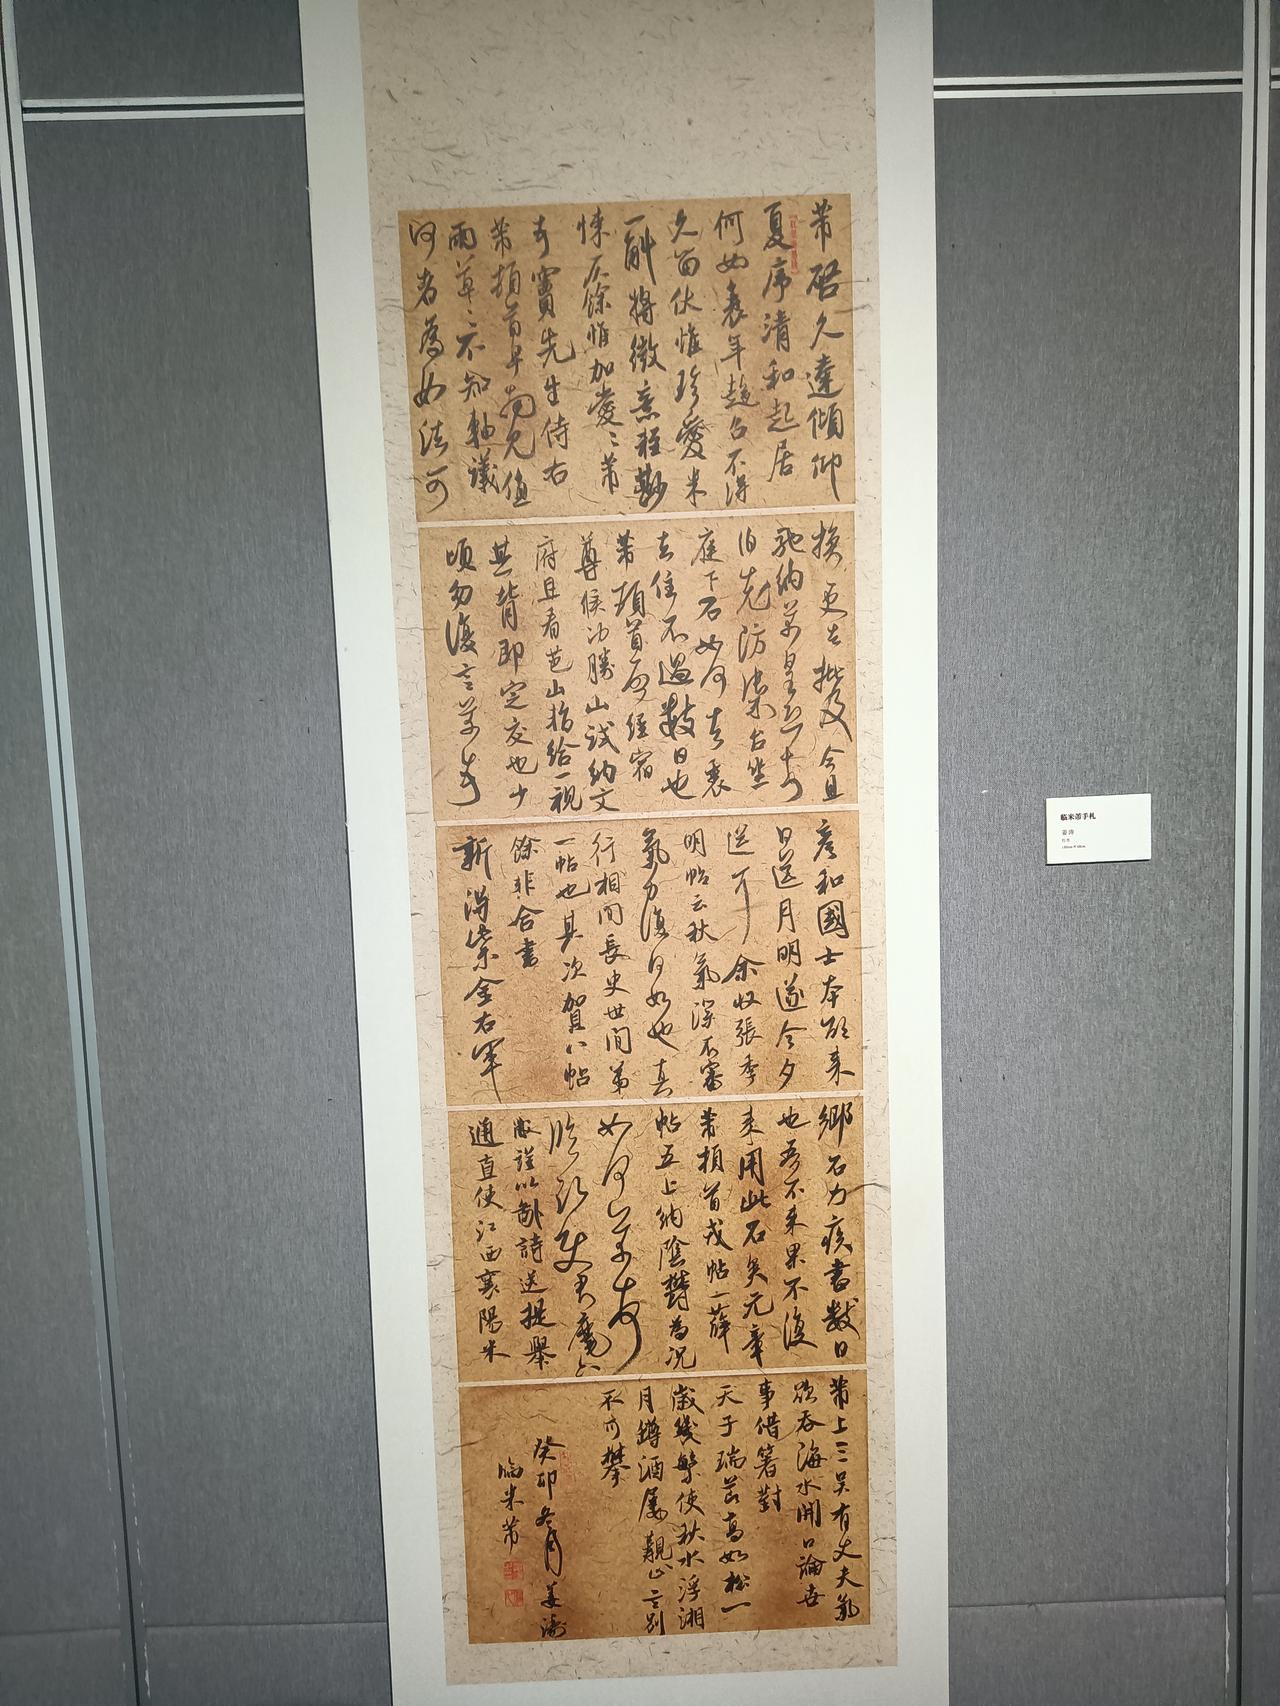 芾启久違傾仰
夏序清和起居
何如衰年趨召不得
久留伏惟珍愛米
一斛將微意輕尠
悚仄餘惟加愛〻芾
奇寶先生侍右
芾頓首早面兄值
雨草〻不知軸議
何者為如法可
換更去批及今且
馳納芾皇恐
伯充防禦台坐
庭下石如何去衷
去住不過數日也
芾頓首再經宿
尊候沖勝山試納文
府且看芭山抬給一視
其背即定交也少
頃勿復言芾
彥和國士本欲來
日送月明遂今夕
送耳余收張季
明帖云秋氣深不審
氣力復何如也真
行相間長史世間第
一帖也其次賀八帖
餘非合書
新得紫金右軍
鄉石力疾書數日
也吾不來果不復
來用此石矣元章
芾頓首戎帖一薛
帖五上納陰鬱為況
如何芾
臨沂使君麾下
敝謹以鄙詩送提舉
通直使江西襄陽米
芾上三吳有丈夫氣
欲吞海水開口論世
事借箸對
天子瑞節高如松一
歲幾繁使秋水浮湘
月鐏酒屢親止言別
不可攀
癸卯冬月姜濤
臨米芾
临米芾手札
姜涛